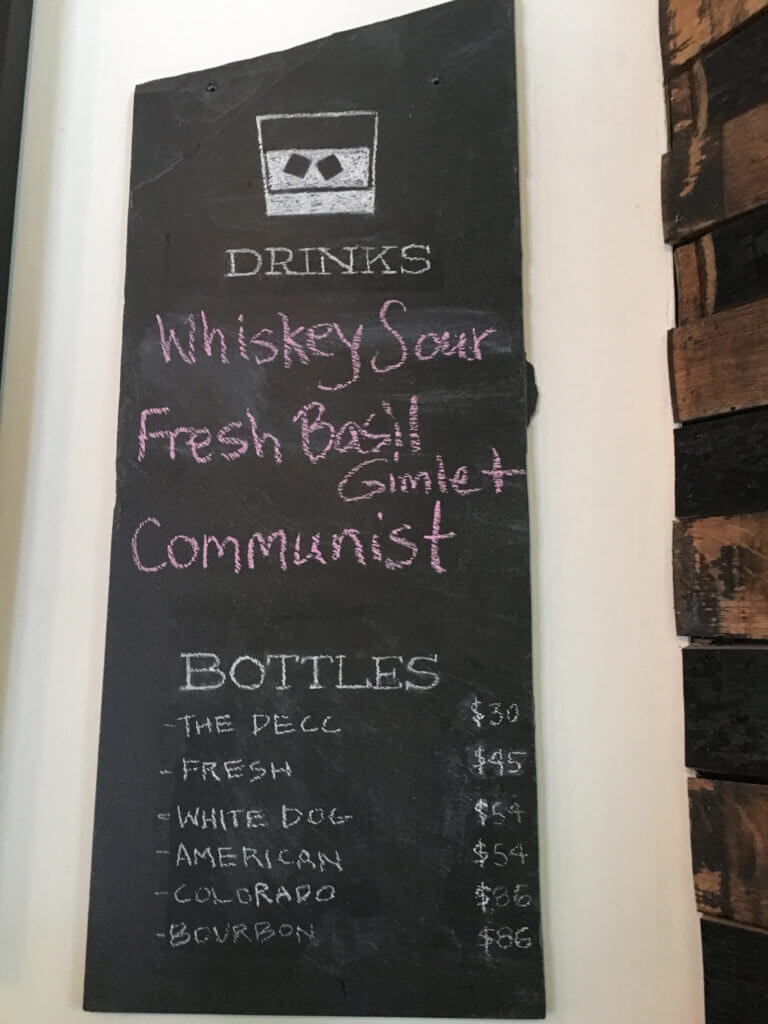 DRINKS
Whiskey Sour
Fresh Basil
Gimlet
Communist
BOTTLES
-THE DECC $30
-FRESH $45
-WHITE DOG $54
-AMERICAN $54
-COLORADO $86
-BOURBON $86